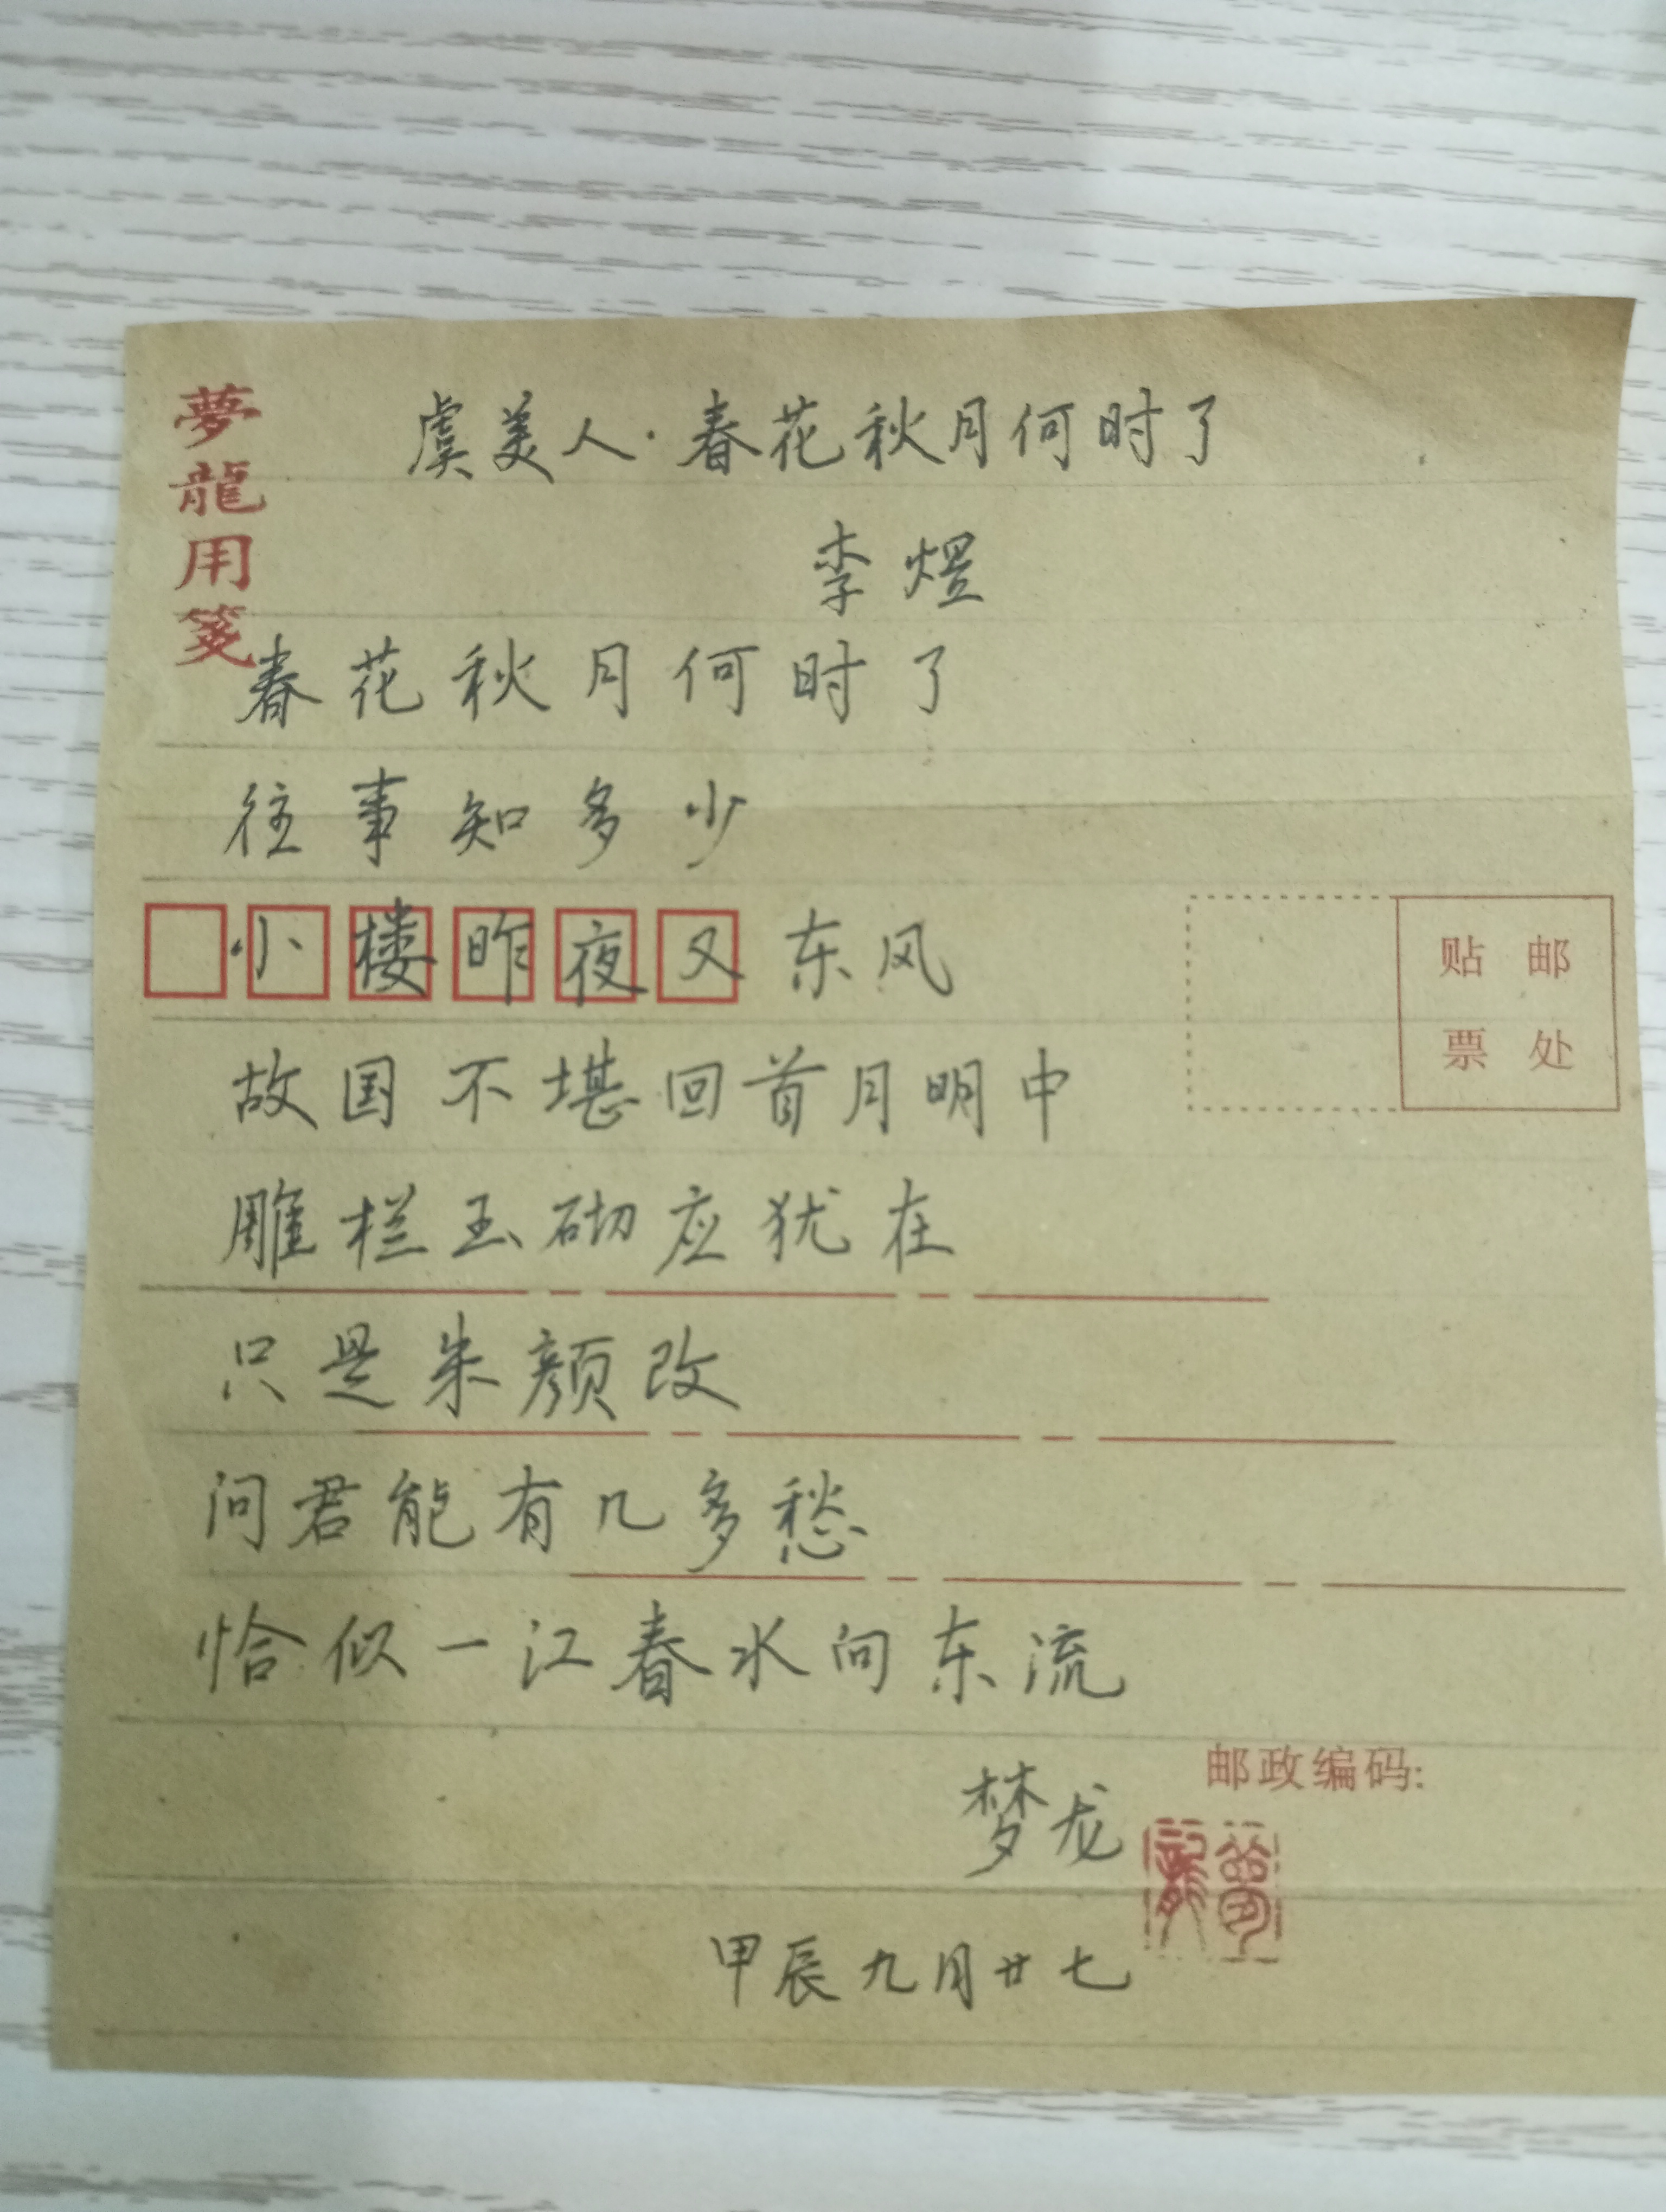 夢龍用箋
虞美人·春花秋月何时了
李煜
春花秋月何时了
往事知多少
小楼昨夜又东风
贴邮
票处
故国不堪回首月明中
雕栏玉砌应犹在
只是朱颜改
问君能有几多愁
恰似一江春水向东流
邮政编码:
梦龙
夢龍
甲辰九月廿七